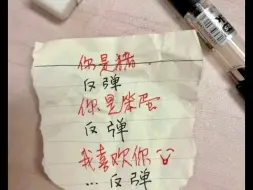 你是猪.
反弹
你是笨蛋
反弹
我喜欢你
...反弹